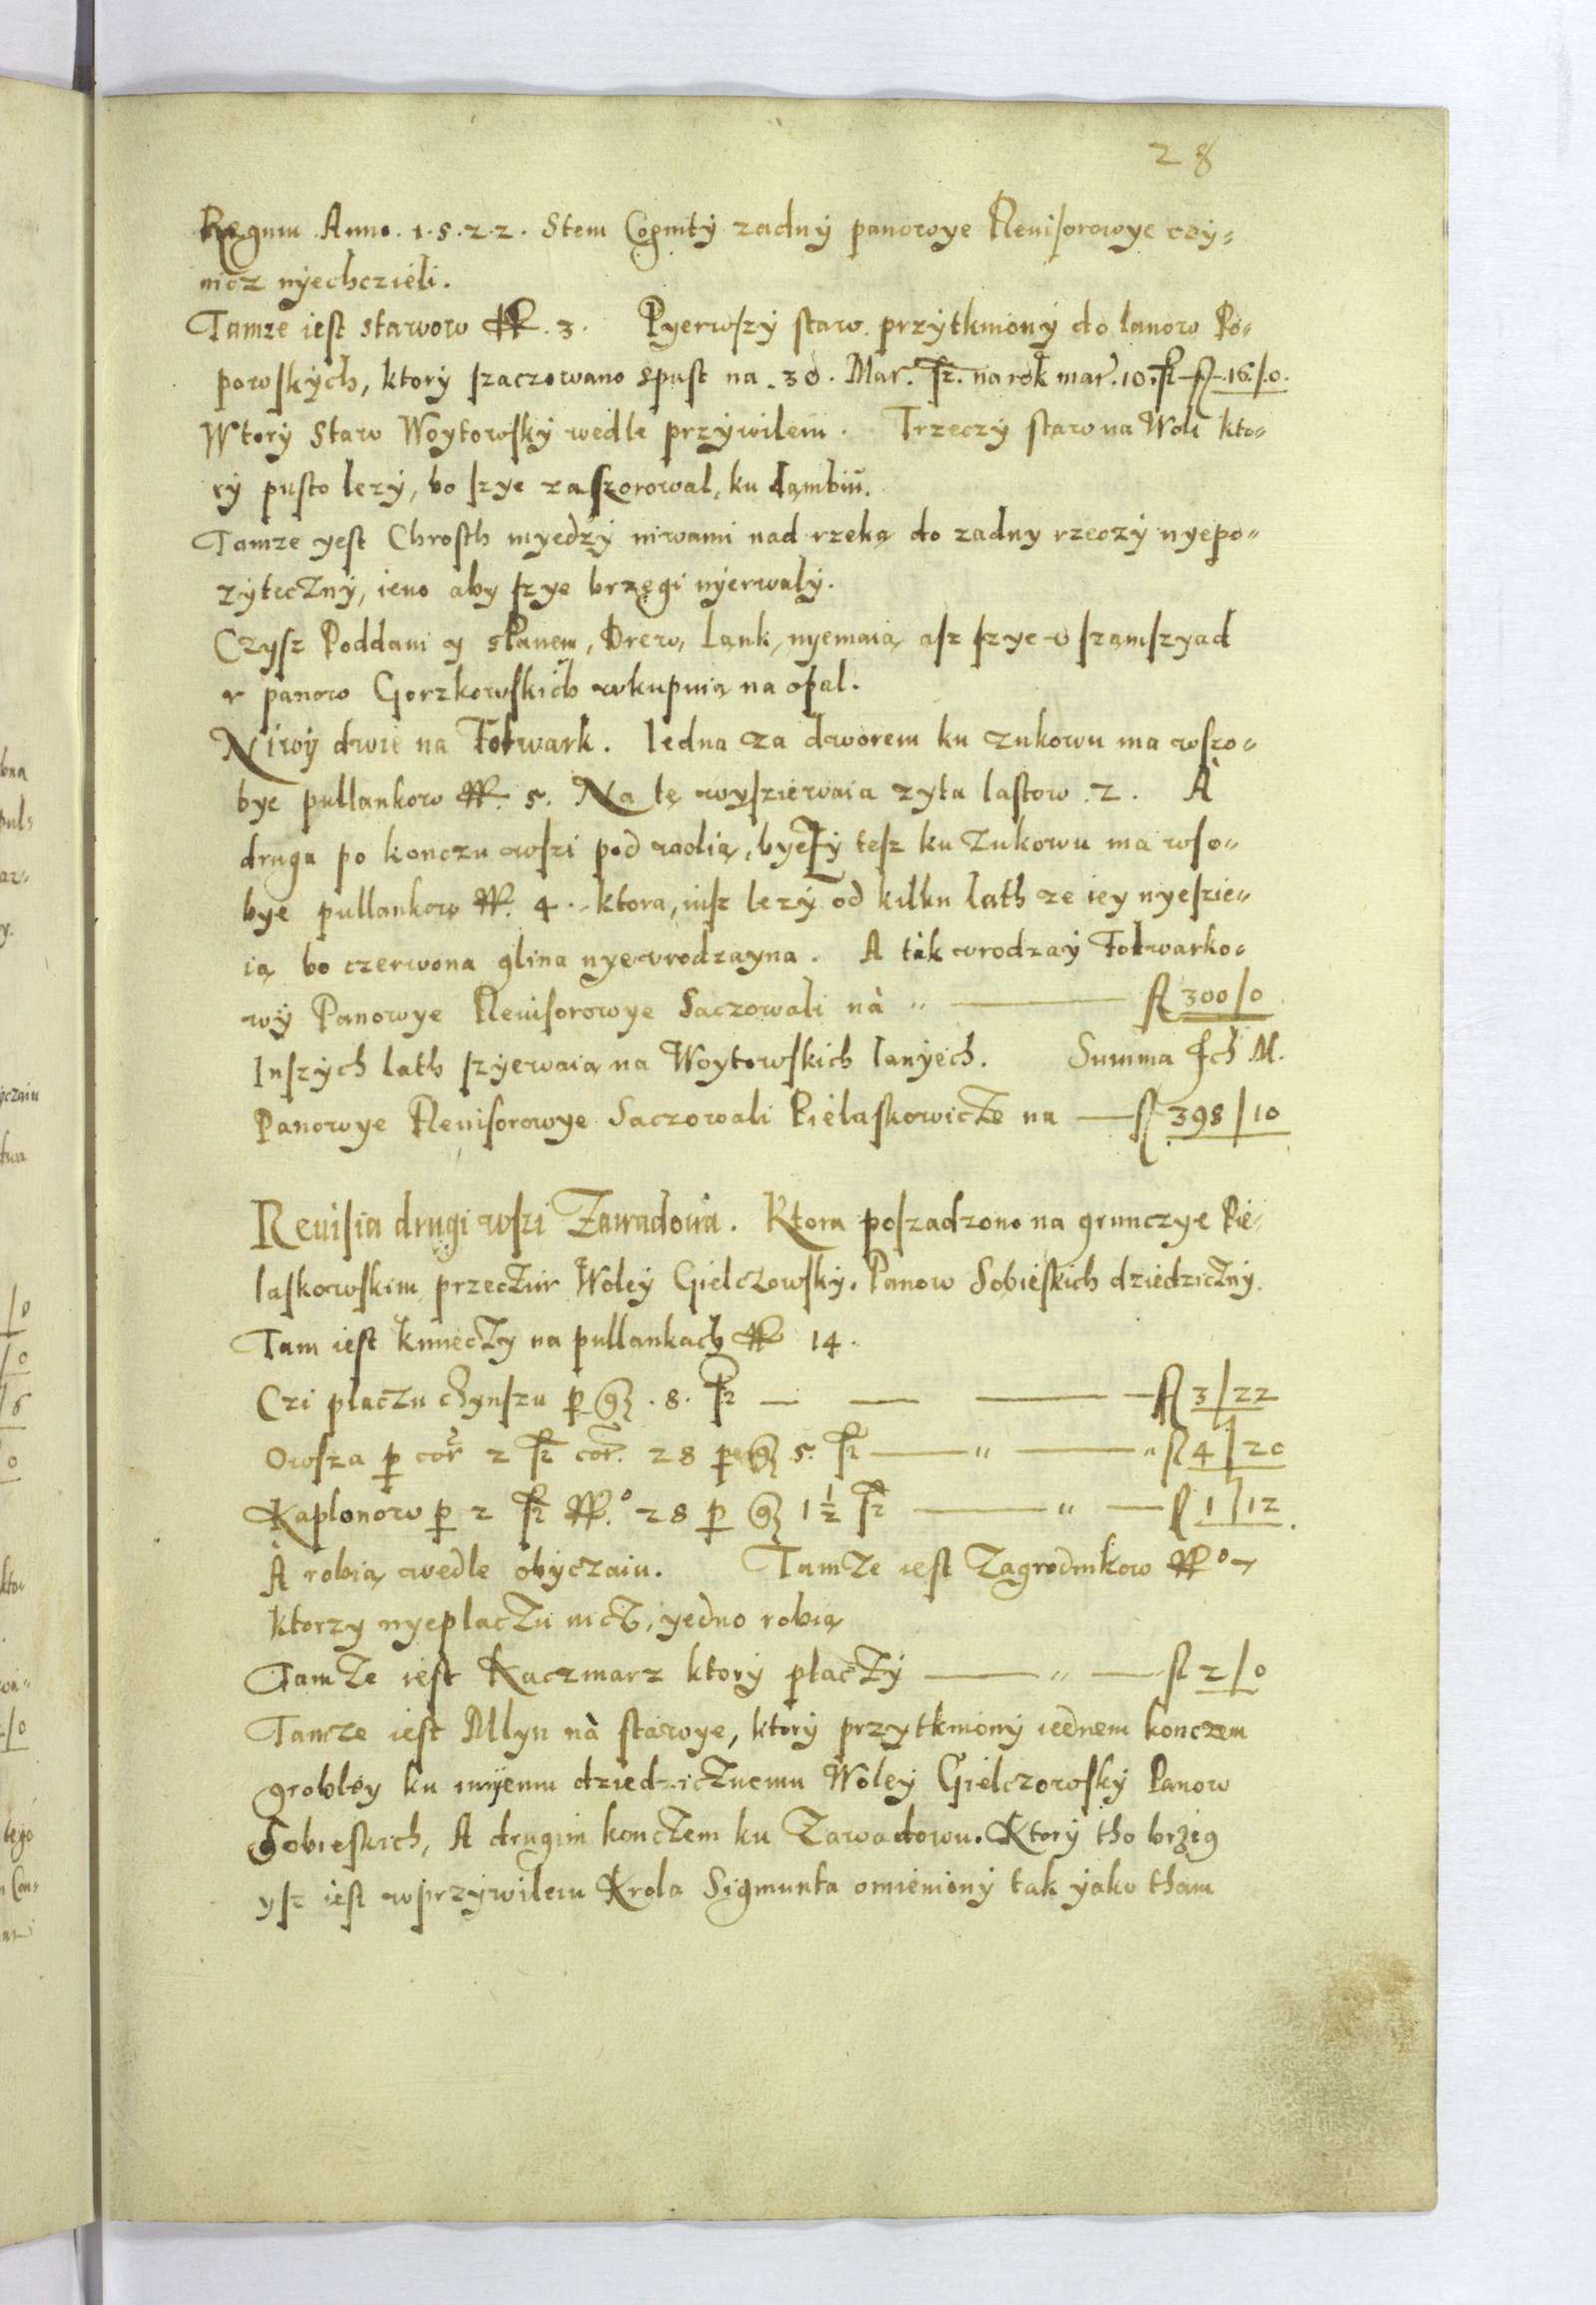 28
Regnm Anno. 1.5.2.2. Stem Cognity zadny panowye Reuisorowye czy=
nicz nyechczieli.
Tamze iest stawow 3. Pyerwszy staw przytkniony do lanow Po=
powskych, ktory szaczowano spust na 30. Mar. na rok mar. 10. fl 16/0.
Wtory Staw Woytowsky wedle przywilem. Trzeczy staw na Woli kto=
ry pusto lezy, bo szye zaszorowal, ku dambiu.
Tamze yest Chrosth myedzy niwami nad rzeka do zadny rzeczy nyepo=
zyteczny, ieno aby szye brzegi nyerwaly.
Czysz Poddani y sPanem, Drew, Lank, nyemaia asz szye v szamszyad
v panow Gorzkowskich wkupuia na opal.
Niwy dwie na Folwark. Iedna za dworem ku zukowu ma wszo=
bye pullankow 5. Na tę wyszierwaia zyta lastow 2. A
druga po konczu wszi pod wolią, byezy tesz ku zukowu ma wso=
bye pullankow 4. ktora, iusz lezy od kilku lath ze iey nyeszie=
ią bo czerwona glina nyewrodzayna. A tak vrodzay Folwarko=
wy Panowye Reuisorowye Saczowali nà fl 300/0
Inszych lath szyewaia na Woytowskich lanyech. Summa
Panowye Reuisorowye Saczowali Pielaskowicze na fl 398/10
Reuisia drugi wszi Zawadowa. Ktora poszadzono na grunczye Pie=
laskowskim przecziw Woley Gielczowsky. Panow Sobieskich dziedziczny.
Tam iest kmieczy na pullankach 14.
Czi placzu czynszu p g 8. fl 3/22
Owsza p cor 2 cor. 28 per g 5. fl 4/20
Kaplonow p 2 28 p g 1 1/2 fl 1/12
A robią wedle obyczaiu. Tamze iest Zagrodnikow
ktorzy nyeplaczu nicz, yedno robią
Tamze iest Kaczmarz ktory placzy fl 2/0
Tamcze iest Mlyn nà stawye, ktory przytkniony iednem konczem
grobley ku imyeniu dziedzicznemu Woley Gielczowsky Panow
Sobieskich, A drugim konczem ku Zawadowu. Ktory tho brzig
ysz iest wprzywilem Krola Sigmunta omieniony tak yako tham